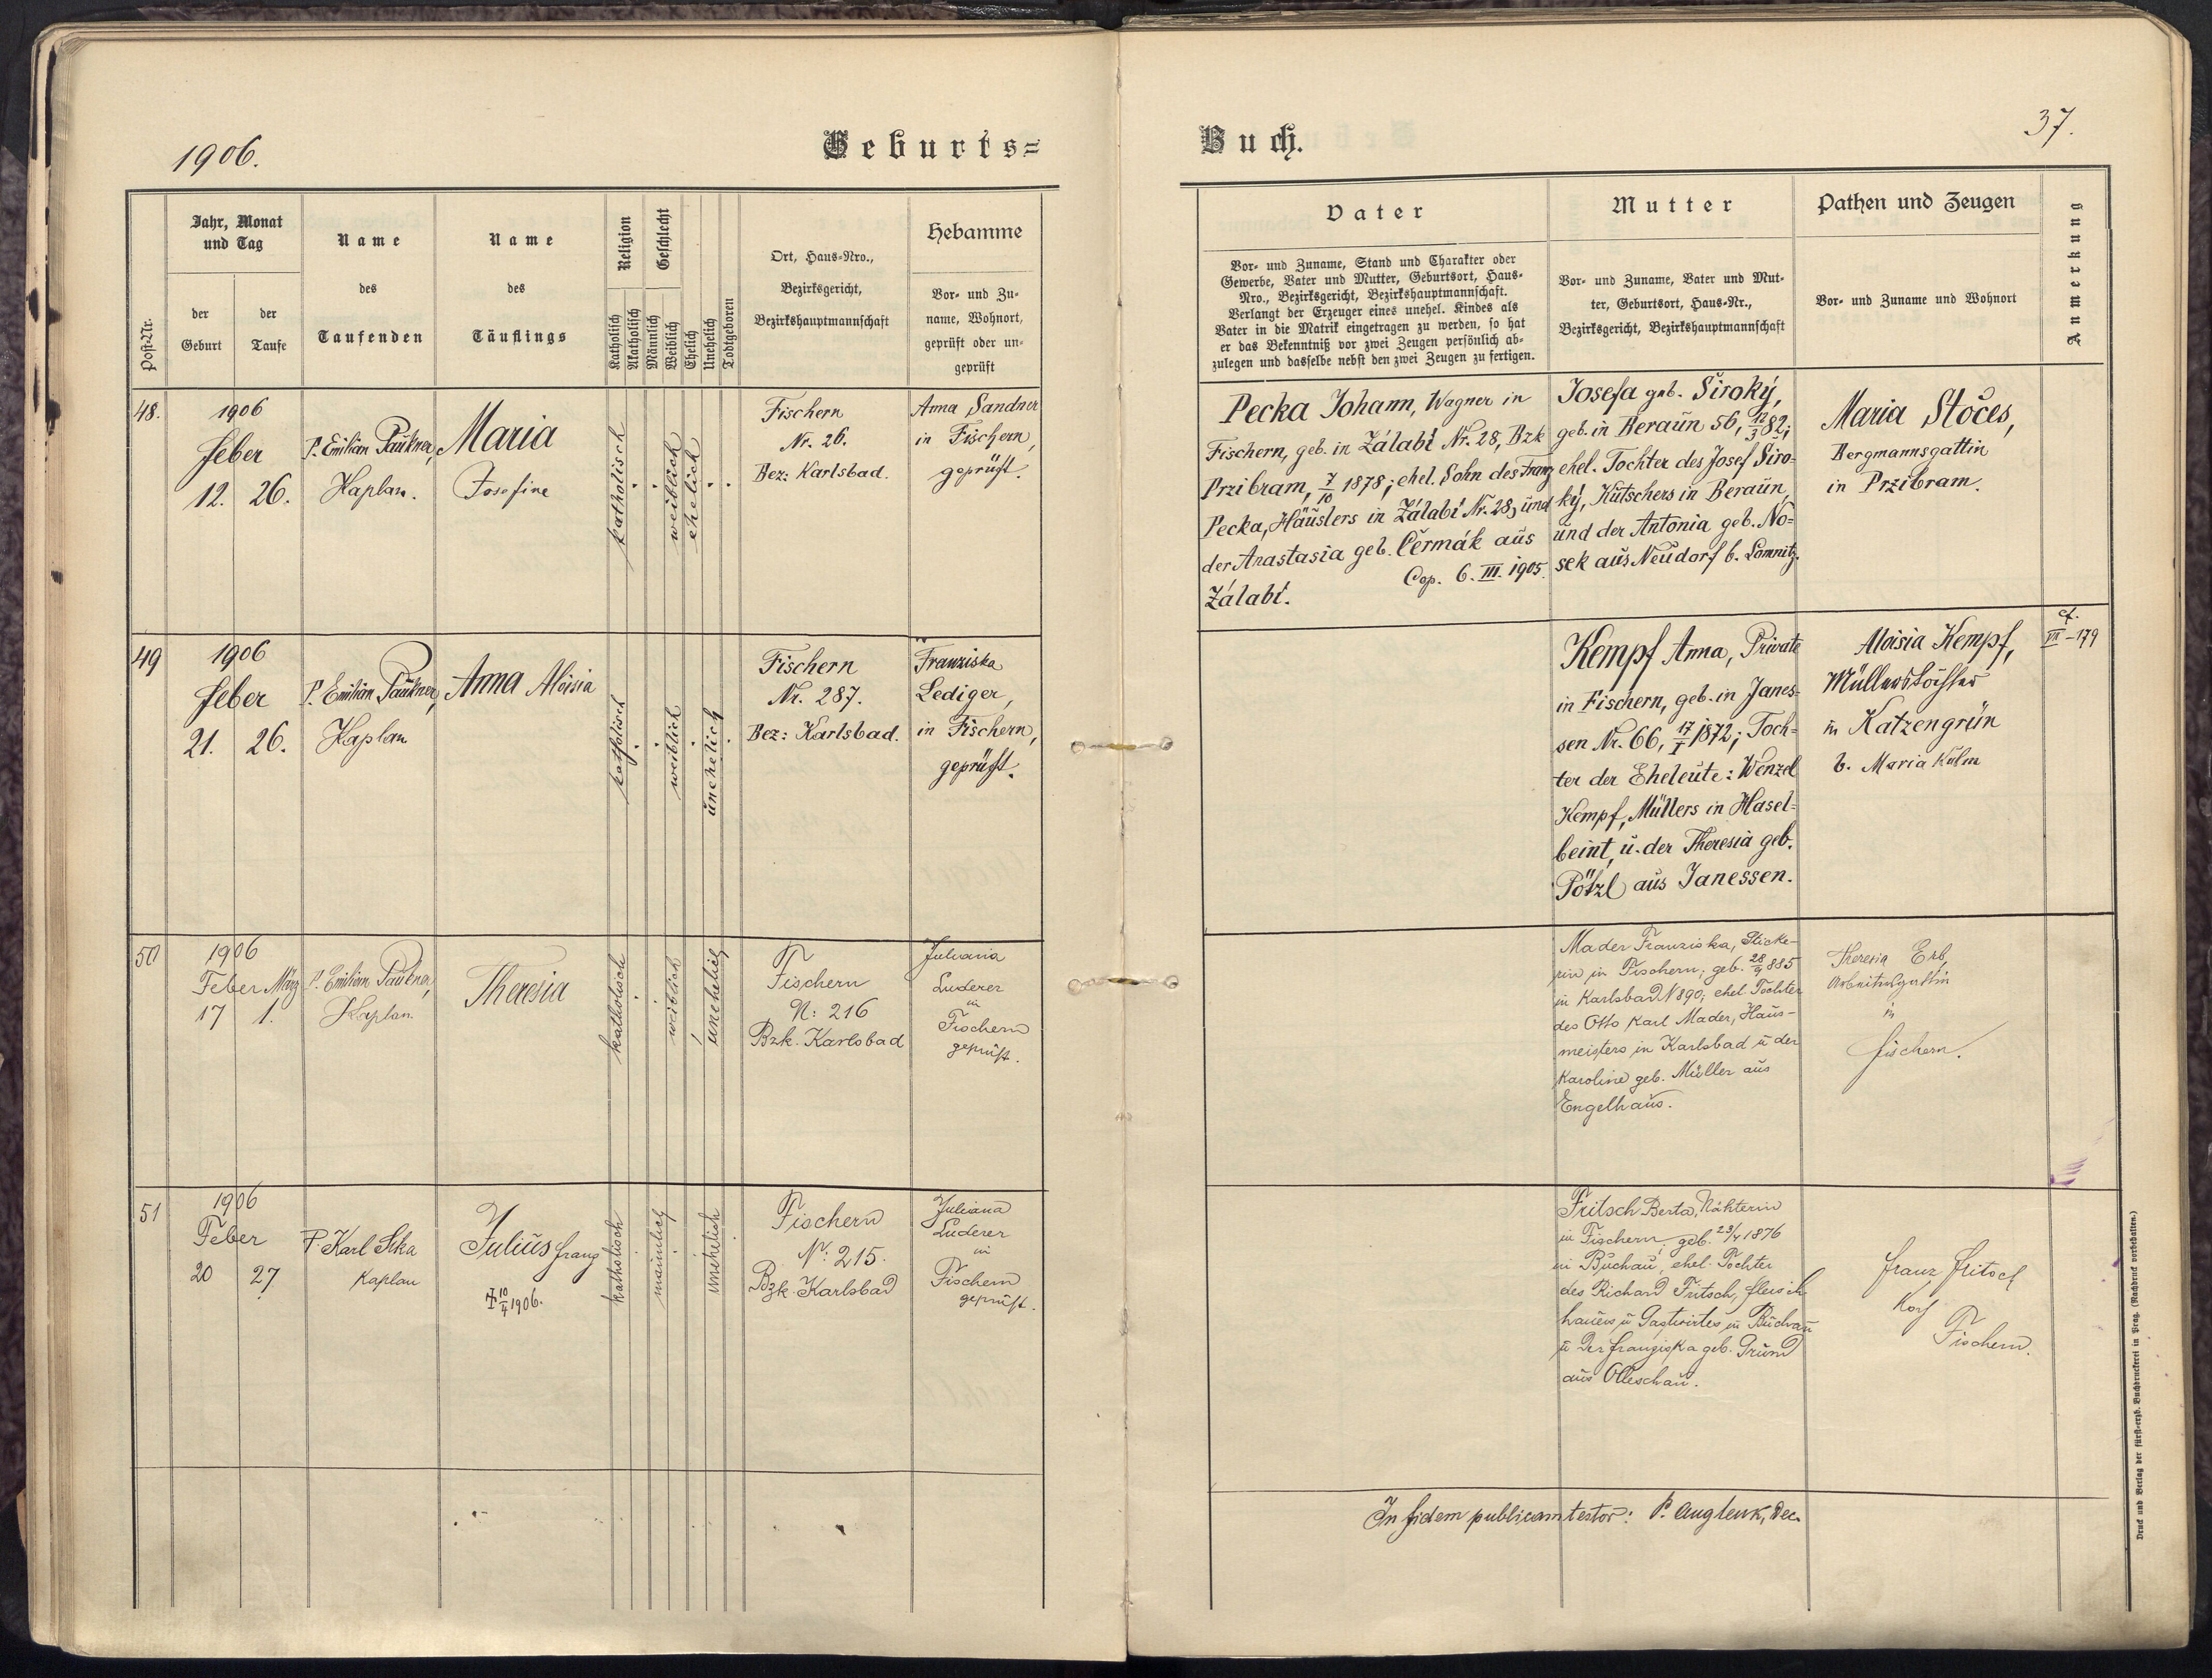 1906.
Geburts=
Post-Nr.
Jahr, Monat
und Tag
der
Geburt
der
Taufe
Name
des
Taufenden
Name
des
Täuflings
Religion
Katholisch
Akatholisch
Geschlecht
Männlich
Weiblich
Ehelich
Unehelich
Todtgeboren
Ort, Haus-Nro.,
Bezirksgericht,
Bezirkshauptmannschaft
Hebamme
Vor- und Zu-
name, Wohnort,
geprüft oder un-
geprüft
48.
1906
Feber
12. 26.
P. Emilian Paukner,
Kaplan.
Maria
Josefine
katholisch
weiblich
ehelich
Fischern
Nr. 26.
Bez: Karlsbad.
Anna Sandner
in Fischern,
geprüft.
49
1906
Feber
21. 26.
P. Emilian Paukner,
Kaplan
Anna Aloisia
katholisch
weiblich
unehelich
Fischern
Nr. 287.
Bez: Karlsbad.
Franziska
Lediger,
in Fischern,
geprüft.
50
1906
Feber März
17 1.
P. Emilian Paukner,
Kaplan.
Theresia
katholisch
weiblich
unehelich
Fischern
N: 216
Bzk. Karlsbad
Juliana
Luderer
in
Fischern
geprüft.
51
1906
Feber
20 27
P. Karl Sika
Kaplan
Julius Franz
† 10/4 1906.
katholisch
männlich
unehelich
Fischern
N: 215.
Bzk. Karlsbad
Juliana
Luderer
in
Fischern
geprüft.
Buch.
37.
Vater
Vor- und Zuname, Stand und Charakter oder
Gewerbe, Vater und Mutter, Geburtsort, Haus-
Nro., Bezirksgericht, Bezirkshauptmannschaft.
Verlangt der Erzeuger eines unehel. Kindes als
Vater in die Matrik eingetragen zu werden, so hat
er das Bekenntniß vor zwei Zeugen persönlich ab-
zulegen und dasselbe nebst den zwei Zeugen zu fertigen.
Mutter
Vor- und Zuname, Vater und Mut-
ter, Geburtsort, Haus-Nr.,
Bezirksgericht, Bezirkshauptmannschaft
Pathen und Zeugen
Vor- und Zuname und Wohnort
Anmerkung
Pecka Johann, Wagner in
Fischern, geb. in Zálabí Nr. 28, Bzk
Przibram, 7/10 1878; ehel. Sohn des Franz
Pecka, Häuslers in Zálabí Nr. 28, und
der Anastasia geb. Čermák aus
Cop. 6. III. 1905.
Zálabí.
Josefa geb. Široký,
geb. in Beraun 56, 12/3 82;
ehel. Tochter des Josef Širo-
ký, Kutschers in Beraun,
und der Antonia geb. No=
sek aus Neudorf b. Lomnitz.
Maria Stočes,
Bergmannsgattin
in Przibram.
Kempf Anna, Private
in Fischern, geb. in Janes-
sen Nr. 66, 17/I 1872; Toch=
ter der Eheleute: Wenzel
Kempf, Müllers in Hasel-
beint, u. der Theresia geb.
Pötzl aus Janessen.
Aloisia Kempf,
Müllerstochter
in Katzengrün
b. Maria Kulm
cf.
VII-179
Mader Franziska, Sticke-
rin in Fischern; geb. 28/9 885
in Karlsbad N 890; ehel. Tochter
des Otto Karl Mader, Haus-
meisters in Karlsbad u der
Karoline geb. Müller aus
Engelhaus.
Theresia Erb,
Arbeitersgattin
in
Fischern.
Fritsch Berta, Nähterin
in Fischern; geb. 23/4 1876
in Buchau, ehel. Tochter
des Richard Fritsch, Fleisch-
hauers u Gastwirtes in Buchau
u der Franziska geb. Grund
aus Olleschau.
Franz Fritsch
Fischern.
In fidem publicam testor: P. Aug Lenk, Dec.
Druck und Verlag der fürst-erzb. Buchdruckerei in Prag. (Nachdruck vorbehalten.)